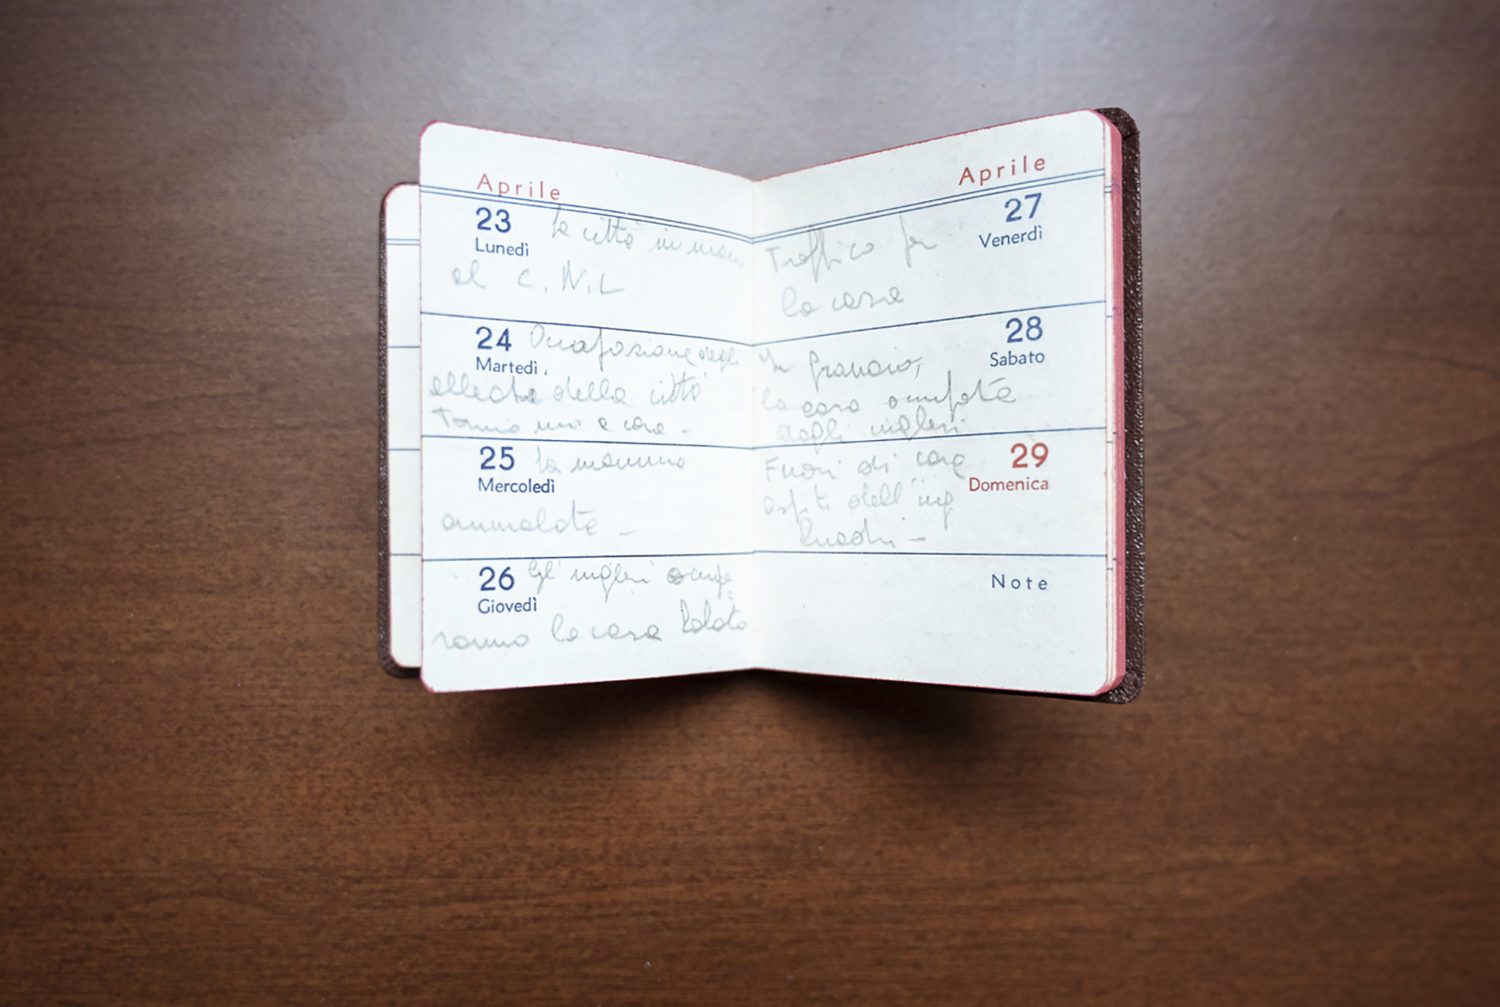 Aprile
23
Lunedì
La città in man
al C.N.L
24
Martedì
Occupazione degli
alleati della città
Torniamo a casa -
25
Mercoledì
La mamma
ammalata -
26
Giovedì
Gl' inglesi occupe
ranno la casa
Aprile
27
Venerdì
Traffico per
la casa
28
Sabato
In granaio,
la casa occupata
dagli inglesi
29
Domenica
Fuori di casa
ospiti dell'ing
Note